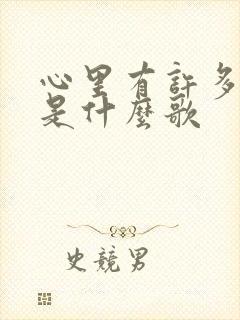 心里有許多
是什麼歌
史競男